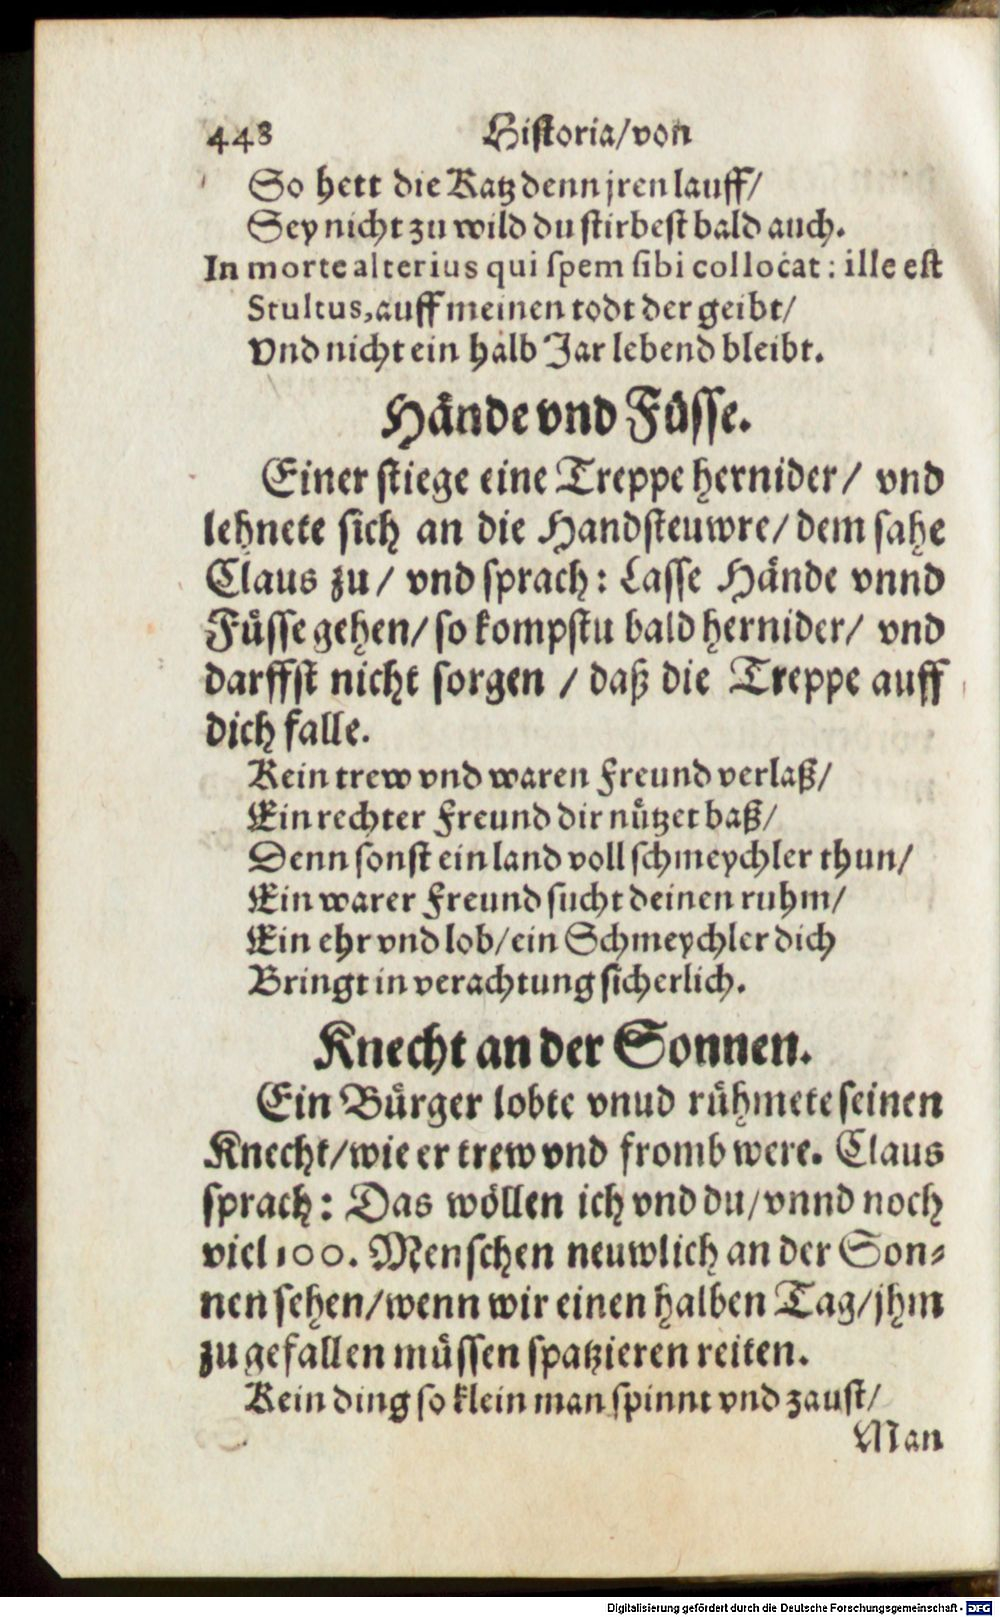 448 Historia/von
So hett die Katz denn jren lauff/
Sey nicht zu wild du stirbest bald auch.
In morte alterius qui spem sibi collocat: ille est
Stultus, auff meinen todt der geibt/
Vnd nicht ein halb Jar lebend bleibt.
Hände vnd Füsse.
Einer stiege eine Treppe hernider/ vnd
lehnete sich an die Handsteuwre/ dem sahe
Claus zu/ vnd sprach: Lasse Hände vnnd
Füsse gehen/ so kompstu bald hernider/ vnd
darffst nicht sorgen / daß die Treppe auff
dich falle.
Kein trew vnd waren Freund verlaß/
Ein rechter Freund dir nützet baß/
Denn sonst ein land voll schmeychler thun/
Ein warer Freund sucht deinen ruhm/
Ein ehr vnd lob/ein Schmeychler dich
Bringt in verachtung sicherlich.
Knecht an der Sonnen.
Ein Bürger lobte vnud rühmete seinen
Knecht/wie er trew vnd fromb were. Claus
sprach: Das wöllen ich vnd du/vnnd noch
viel 100. Menschen neuwlich an der Son⸗
nen sehen/wenn wir einen halben Tag/jhm
zu gefallen müssen spatzieren reiten.
Kein ding so klein man spinnt vnd zaust/
Man
Digitalisierung gefördert durch die Deutsche Forschungsgemeinschaft - DFG